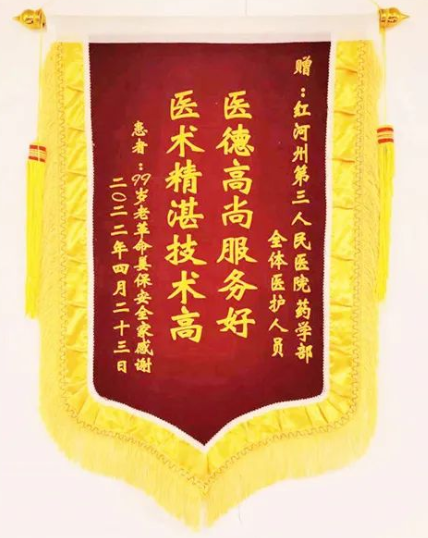 赠：红河州第三人民医院药学部
全体医护人员
医德高尚服务好
医术精湛技术高
患者：99岁老革命昙保安全家感谢
二〇二二年四月二十三日